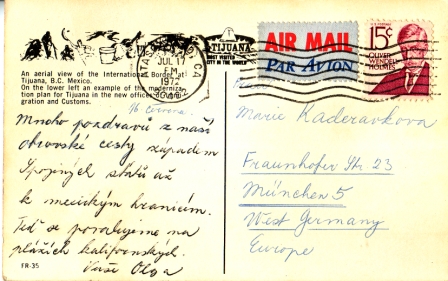 An aerial view of the International Border at
Tijuana, B.C. Mexico.
On the lower left an example of the moderniza-
tion plan for Tijuana in the new offices of
gration and Customs.
TIJUANA
MOST VISITED
CITY IN THE WORLD
CA
JUL 17
PM
1972
AIR MAIL
PAR AVION
15¢
OLIVER
WENDELL
HOLMES
16 června
Mnoho pozdravů z naší
obrovské cesty západem
Spojených států až
k mexickým hranicím.
Teď se povalujeme na
plážích kalifornských.
Vaše Olga
FR-35
Marie Kaderavkova
Fraunhofer Str. 23
München 5
West Germany
Europe